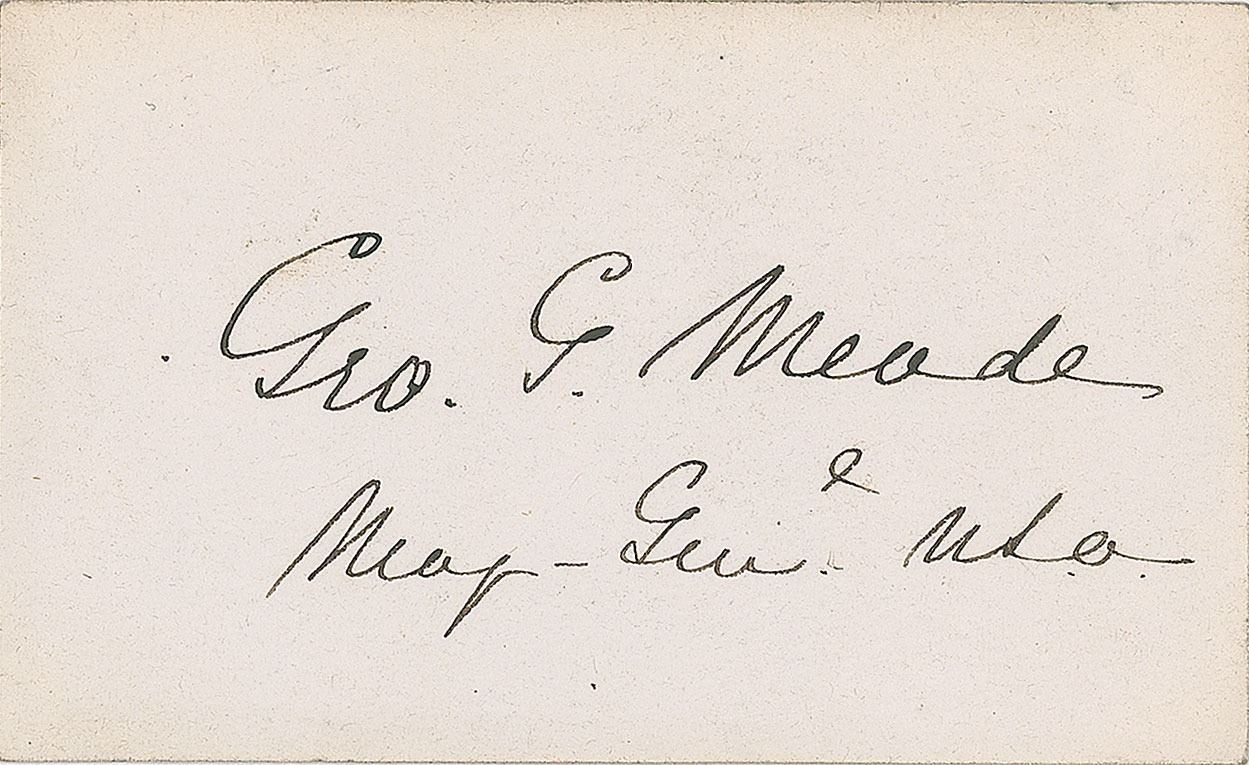 Geo. G. Meade
Maj-Gen.l U.S.A.